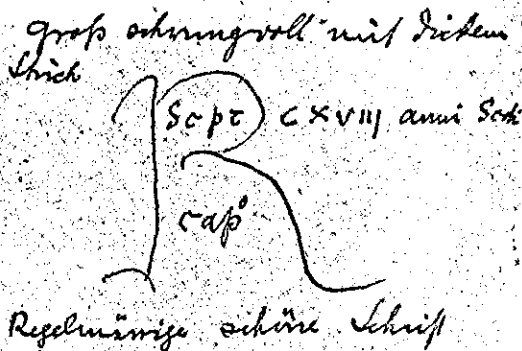 groß schwungvoll mit dickem
Strich
R
Scpt CXVIII anni
cap°
Regelmässige schöne Schrift